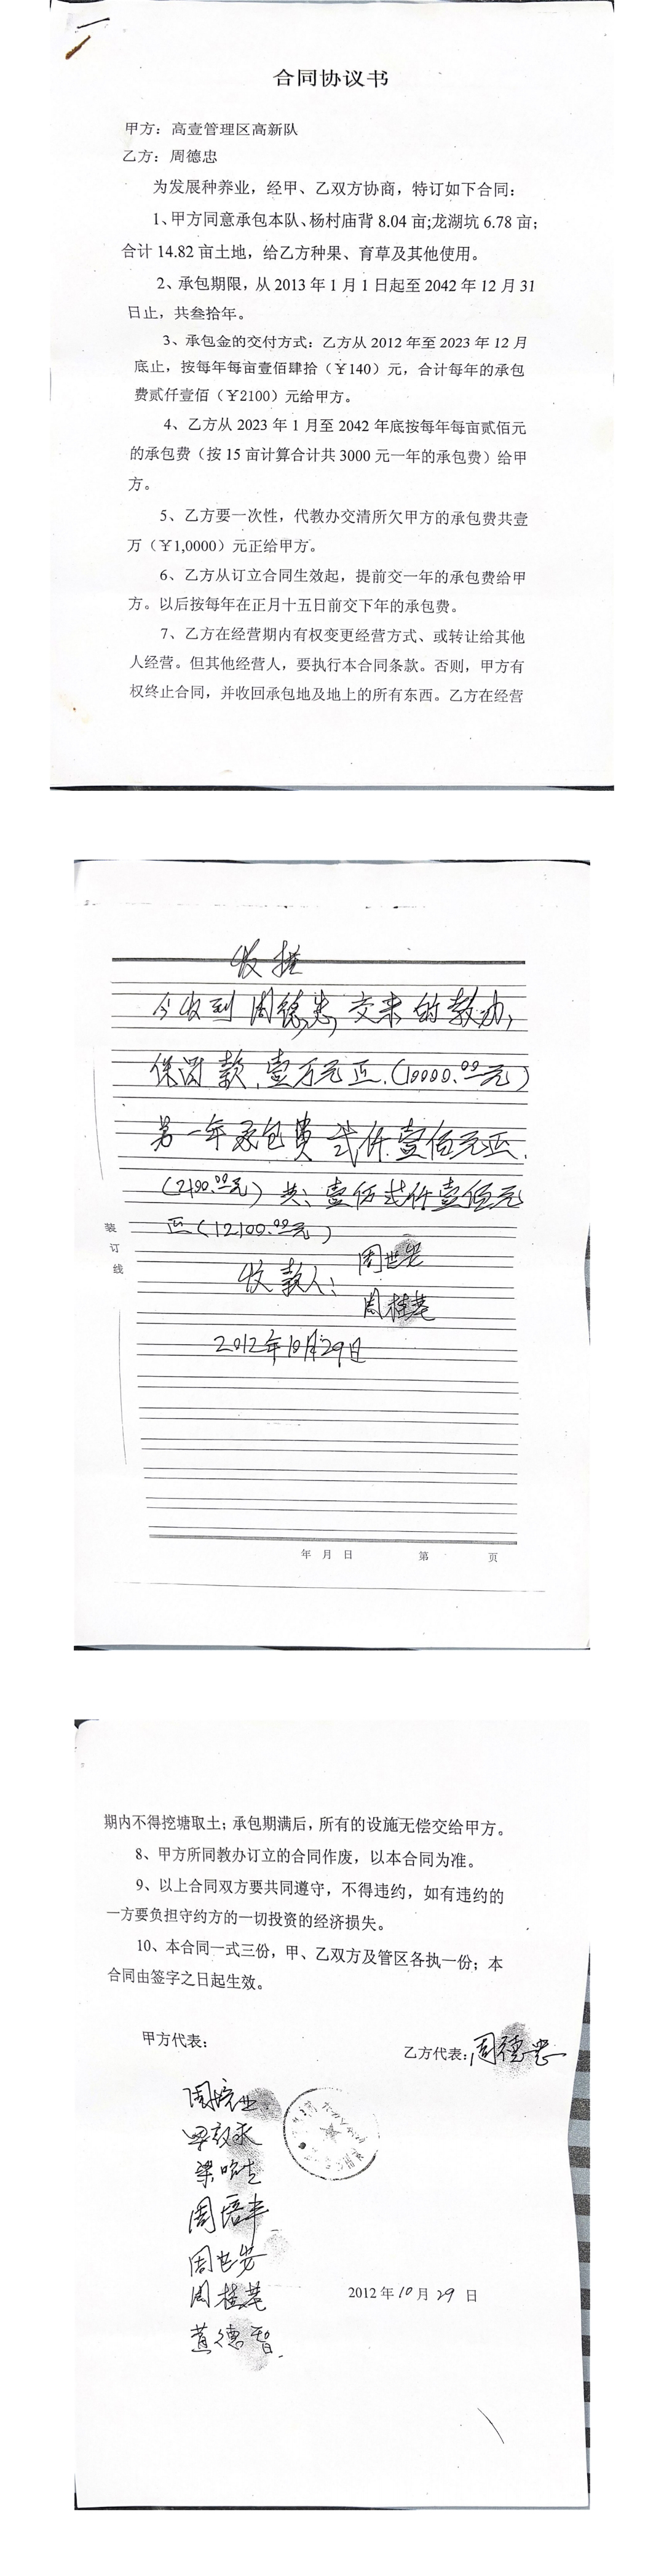 合同协议书
甲方：高壹管理区高新队
乙方：周德忠
为发展种养业，经甲、乙双方协商，特订如下合同：
1、甲方同意承包本队、杨村庙背 8.04 亩;龙湖坑 6.78 亩；
合计 14.82 亩土地，给乙方种果、育草及其他使用。
2、承包期限，从 2013 年 1 月 1 日起至 2042 年 12 月 31
日止，共叁拾年。
3、承包金的交付方式：乙方从 2012 年至 2023 年 12 月
底止，按每年每亩壹佰肆拾（￥140）元，合计每年的承包
费贰仟壹佰（￥2100）元给甲方。
4、乙方从 2023 年 1 月至 2042 年底按每年每亩贰佰元
的承包费（按 15 亩计算合计共 3000 元一年的承包费）给甲
方。
5、乙方要一次性，代教办交清所欠甲方的承包费共壹
万（￥1,0000）元正给甲方。
6、乙方从订立合同生效起，提前交一年的承包费给甲
方。以后按每年在正月十五日前交下年的承包费。
7、乙方在经营期内有权变更经营方式、或转让给其他
人经营。但其他经营人，要执行本合同条款。否则，甲方有
权终止合同，并收回承包地及地上的所有东西。乙方在经营
收据
今收到周德忠交来的教办，
款.壹万元正.(10000.00元)
第一年承包费贰仟壹佰元正.
(2100.00元)共:壹万贰仟壹佰元
正(12100.00元)
装
订
线
收款人:周世安
周桂苑
2012年10月29日
年 月 日 第 页
期内不得挖塘取土；承包期满后，所有的设施无偿交给甲方。
8、甲方所同教办订立的合同作废，以本合同为准。
9、以上合同双方要共同遵守，不得违约，如有违约的
一方要负担守约方的一切投资的经济损失。
10、本合同一式三份，甲、乙双方及管区各执一份；本
合同由签字之日起生效。
甲方代表：
乙方代表：周德忠
周培丰
周世安
周桂苑
黄德智
2012 年 10 月 29 日